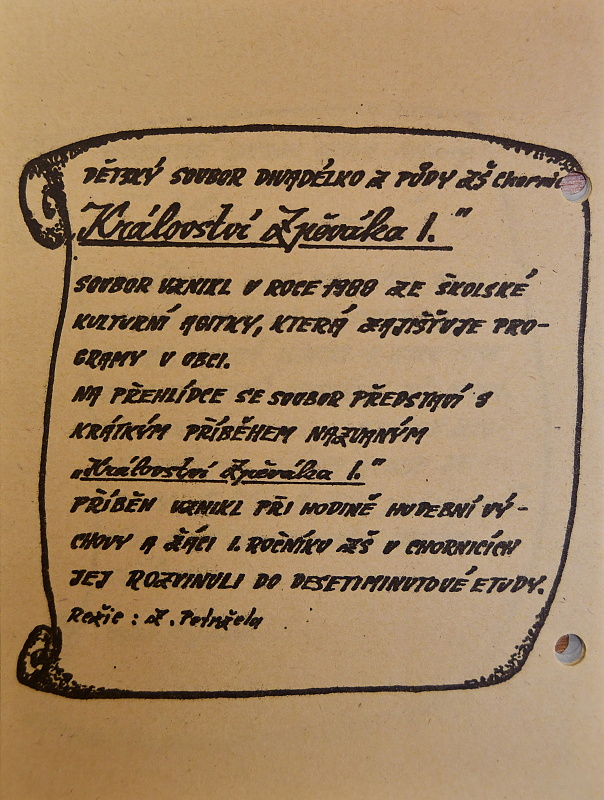 DĚTSKÝ SOUBOR DIVADÉLKO Z PŮDY ZŠ Chornic
Království Zpěváka I."
SOUBOR VZNIKL V ROCE 1988 ZE ŠKOLSKÉ
KULTURNÍ AGITKY, KTERÁ ZAJIŠŤUJE PRO-
GRAMY V OBCI.
NA PŘEHLÍDCE SE SOUBOR PŘEDSTAVÍ S
KRÁTKÝM PŘÍBĚHEM NAZVANÝM
„Království Zpěváka I."
PŘÍBĚH VZNIKL PŘI HODINĚ HUDEBNÍ VÝ-
CHOVY A ŽÁCI I. ROČNÍKU ZŠ V CHORNICÍCH
JEJ ROZVINULI DO DESETIMINUTOVÉ ETUDY.
Režie : Z. Petržela